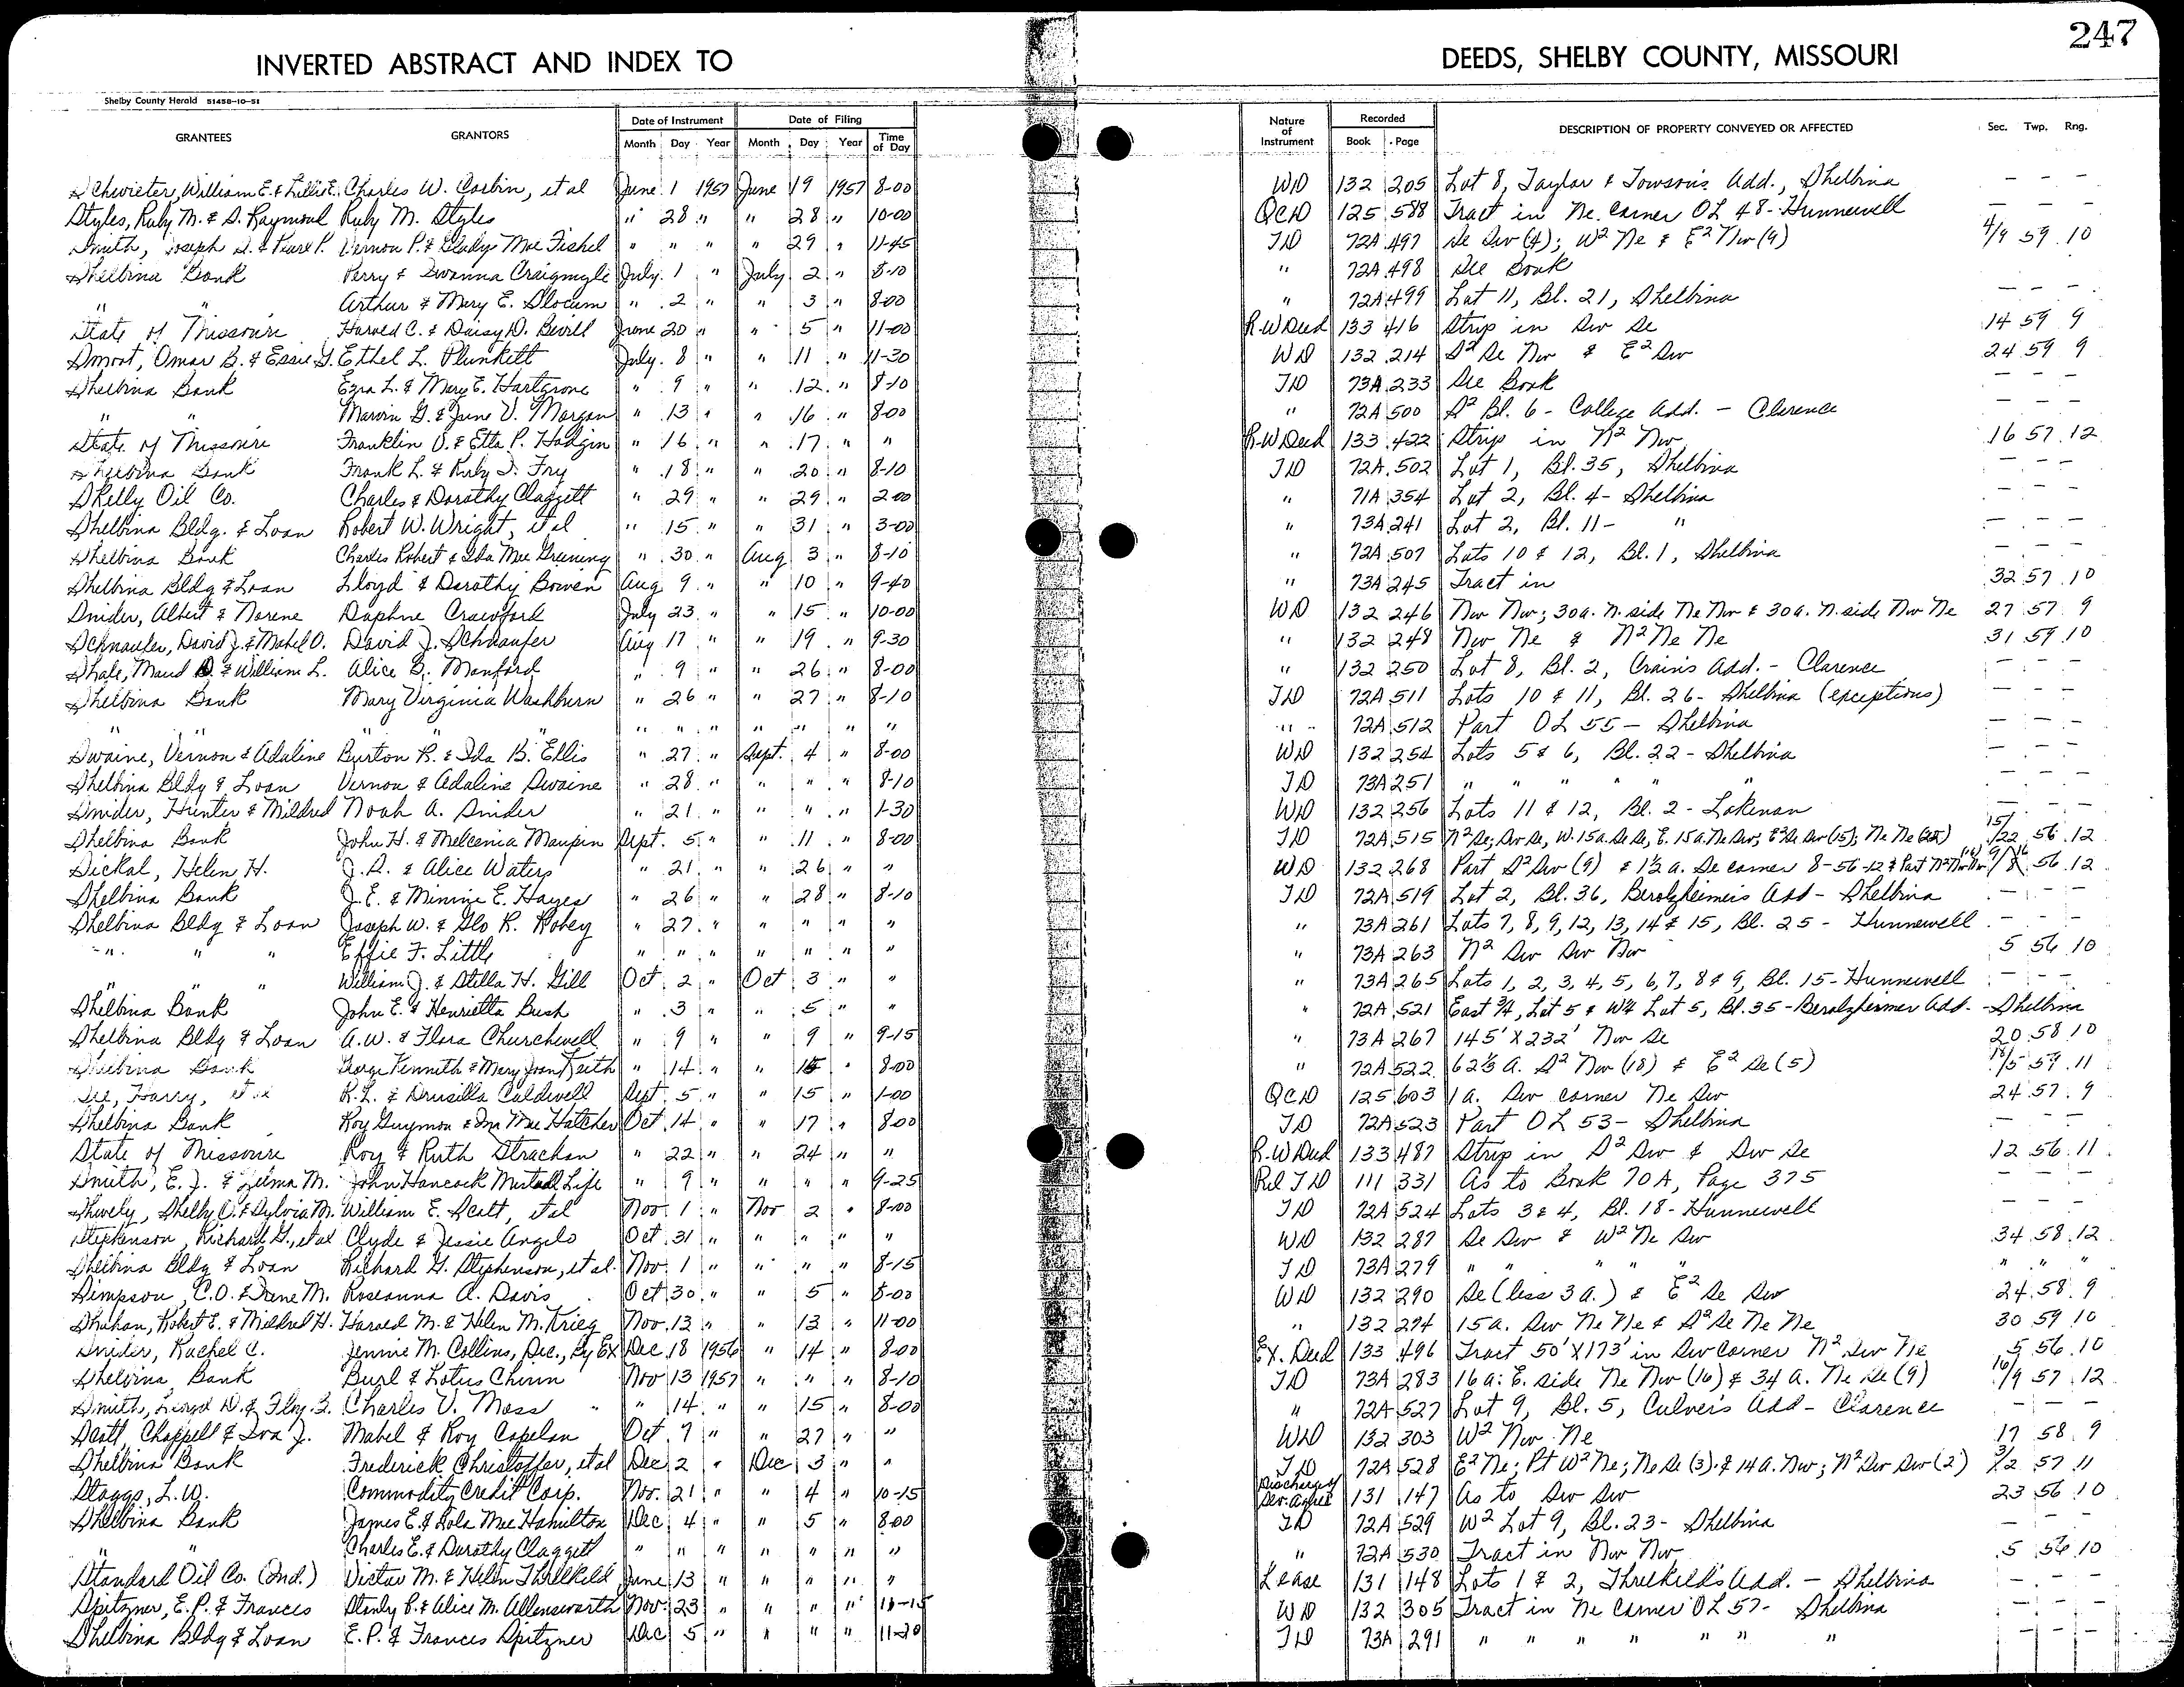 247
INVERTED ABSTRACT AND INDEX TO DEEDS, SHELBY COUNTY, MISSOURI
Shelby County Herald 51458-10-51
GRANTEES GRANTORS Date of Instrument Month Day Year Date of Filing Month Day Year Time of Day Nature of Instrument Recorded Book Page DESCRIPTION OF PROPERTY CONVEYED OR AFFECTED Sec. Twp. Rng.
Schwieter, William E. & Lillie E. Charles W. Corbin, et al June 1 1957 June 19 1957 8-00 WD 132 205 Lot 8, Taylor & Towson's Add., Shelbina - - -
Styles, Ruby M. & S. Raymond Ruby M. Styles " 28 " " 28 " 10-00 QCD 125 588 Tract in Ne. corner OL 48 - Hunnewell - - -
Smith, Joseph D. & Pearl P. Vernon P. & Glady Mae Fishel " " " " 29 " 11-45 TD 72A 497 Se Sw (4); W2 Ne & E2 Nw (9) 4/9 59 10
Shelbina Bank Perry & Swanna Craigmyle July 1 " July 2 " 8-10 " 72A 498 See Book - - -
" " Arthur & Mary E. Slocum " 2 " " 3 " 8-00 " 72A 499 Lot 11, Bl. 21, Shelbina - - -
State of Missouri Harold C. & Daisy D. Bevill June 20 " " 5 " 11-00 R.W Deed 133 416 Strip in Sw Se 14 59 9
Smoot, Omar B. & Essie G. Ethel L. Plunkett July 8 " " 11 " 11-30 WD 132 214 S2 Se Nw & E2 Sw 24 59 9
Shelbina Bank Ezra L. & Mary E. Hartgrove " 9 " " 12 " 8-10 TD 73A 233 See Book - - -
" " Marvin G. & June V. Morgan " 13 " " 16 " 8-00 " 72A 500 S2 Bl. 6 - College Add. - Clarence - - -
State of Missouri Franklin V. & Etta P. Hodgin " 16 " " 17 " " R.W Deed 133 422 Strip in N2 Nw 16 57 12
Shelbina Bank Frank L. & Ruby I. Fry " 18 " " 20 " 8-10 TD 72A 502 Lot 1, Bl. 35, Shelbina - - -
Skelly Oil Co. Charles & Dorothy Claggett " 29 " " 29 " 2-00 " 71A 354 Lot 2, Bl. 4 - Shelbina - - -
Shelbina Bldg. & Loan Robert W. Wright, et al " 15 " " 31 " 3-00 " 73A 241 Lot 2, Bl. 11 - " - - -
Shelbina Bank Charles Robert & Ida Mae Greening " 30 " Aug 3 " 8-10 " 72A 507 Lots 10 & 12, Bl. 1, Shelbina - - -
Shelbina Bldg & Loan Lloyd & Dorothy Bowen Aug 9 " " 10 " 9-40 " 73A 245 Tract in 32 57 10
Snider, Albert & Norene Daphne Crawford July 23 " " 15 " 10-00 WD 132 246 Nw Nw; 30a. N. side Ne Nw & 30a. N. side Nw Ne 27 57 9
Schnaufer, David J. & Mabel O. David J. Schnaufer Aug 17 " " 19 " 9-30 " 132 248 Nw Ne & N2 Ne Ne 31 59 10
Shale, Maud D. & William L. Alice B. Manford " 9 " " 26 " 8-00 " 132 250 Lot 8, Bl. 2, Crain's Add. - Clarence - - -
Shelbina Bank Mary Virginia Washburn " 26 " " 27 " 8-10 TD 72A 511 Lots 10 & 11, Bl. 26 - Shelbina (exceptions) - - -
" " " " " " " " " " " 72A 512 Part OL 55 - Shelbina - - -
Swaine, Vernon & Adaline Burton R. & Ida B. Ellis " 27 " Sept. 4 " 8-00 WD 132 254 Lots 5 & 6, Bl. 22 - Shelbina - - -
Shelbina Bldg & Loan Vernon & Adaline Swaine " 28 " " " " 8-10 TD 73A 251 " " " " " " - - -
Snider, Hunter & Mildred Noah A. Snider " 21 " " " " 1-30 WD 132 256 Lots 11 & 12, Bl. 2 - Lakenan - - -
Shelbina Bank John H. & Melcenia Maupin Sept. 5 " " 11 " 8-00 TD 72A 515 N2 Se; Sw Se, W. 15a. Se Se, E. 15a. Ne Sw; E2 Se Sw (15); Ne Ne (22) 15/22 56 12
Sickal, Helen H. J.S. & Alice Waters " 21 " " 26 " " WD 132 268 Part S2 Sw (9) & 1½ a. Se corner 8-56-12 & Part N2 Nw Nw (16) 9/8/16 56 12
Shelbina Bank J.E. & Minnie E. Hayes " 26 " " 28 " 8-10 TD 72A 519 Lot 2, Bl. 36, Berolzheimer's Add - Shelbina - - -
Shelbina Bldg & Loan Joseph W. & Glo R. Robey " 27 " " " " " " 73A 261 Lots 7, 8, 9, 12, 13, 14 & 15, Bl. 25 - Hunnewell - - -
" " " Effie F. Little " " " " " " " " 73A 263 N2 Sw Sw Nw 5 56 10
" " " William J. & Stella H. Gill Oct 2 " Oct 3 " " " 73A 265 Lots 1, 2, 3, 4, 5, 6, 7, 8 & 9, Bl. 15 - Hunnewell - - -
Shelbina Bank John E. & Henrietta Bush " 3 " " 5 " " " 72A 521 East ¾, Lot 5 & W¼ Lot 5, Bl. 35 - Berolzheimer Add. - Shelbina
Shelbina Bldg & Loan A.W. & Flora Churchwell " 9 " " 9 " 9-15 " 73A 267 145' X 232' Nw Se 20 58 10
Shelbina Bank George Kennith & Mary Joan Keith " 14 " " 15 " 8-00 " 72A 522 62½ a. S2 Nw (18) & E2 Se (5) 18/5 59 11
Harry, et al R.L. & Drusilla Caldwell Sept 5 " " 15 " 1-00 QCD 125 603 1 a. Sw corner Ne Sw 24 57 9
Shelbina Bank Roy Guymon & Ina Mae Hatcher Oct 14 " " 17 " 8-00 TD 72A 523 Part OL 53 - Shelbina - - -
State of Missouri Roy & Ruth Strachan " 22 " " 24 " " R.W Deed 133 487 Strip in S2 Sw & Sw Se 12 56 11
Smith, E.J. & Zelma M. John Hancock Mutual Life " 9 " " " " 9-25 Rel TD 111 331 As to Book 70A, Page 375 - - -
Shively, Shelby C. & Sylvia M. William E. Scott, et al Nov. 1 " Nov 2 " 8-00 TD 72A 524 Lots 3 & 4, Bl. 18 - Hunnewell - - -
Stephenson, Richard G., et al Clyde & Jessie Angelo Oct 31 " " " " " WD 132 287 Se Sw & W2 Ne Sw 34 58 12
Shelbina Bldg & Loan Richard G. Stephenson, et al Nov. 1 " " " " 8-15 TD 73A 279 " " " " " " " "
Simpson, C.O. & Irene M. Roseanna A. Davis Oct 30 " " 5 " 8-00 WD 132 290 Se (less 3 a.) & E2 Se Sw 24 58 9
Shuhan, Robert E. & Mildred H. Harold M. & Helen M. Krieg Nov. 13 " " 13 " 11-00 " 132 294 15 a. Sw Ne Ne & S2 Se Ne Ne 30 59 10
Snider, Rachel C. Jennie M. Collins, Dec., By Ex Dec 18 1956 " 14 " 8-00 Ex. Deed 133 496 Tract 50' X 173' in Sw corner N2 Sw Ne 5 56 10
Shelbina Bank Burl & Lotus Chinn Nov 13 1957 " " " 8-10 TD 73A 283 16 a. E. side Ne Nw (16) & 34 a. Ne Se (9) 16/9 57 12
Smith, D. & Charles V. Moss " 14 " " 15 " 8-00 " 72A 527 Lot 9, Bl. 5, Culver's Add - Clarence - - -
Scott, Chappell & Iva J. Mabel & Roy Copelan Oct 7 " " 27 " " WD 132 303 W2 Nw Ne 17 58 9
Shelbina Bank Frederick Christoffer, et al Dec 2 " Dec 3 " " TD 72A 528 E2 Ne; Pt W2 Ne; Ne Se (3) & 14 a. Nw; N2 Sw Sw (2) 3/2 57 11
Staggs, L.W. Commodity Credit Corp. Nov. 21 " " 4 " 10-15 Discharge Sev. Agree 131 147 As to Sw Sw 23 56 10
Shelbina Bank James E. & Lola Mae Hamilton Dec 4 " " 5 " 8-00 TD 72A 529 W2 Lot 9, Bl. 23 - Shelbina - - -
" " Charles E. & Dorothy Claggett " " " " " " " " 72A 530 Tract in Nw Nw 5 56 10
Standard Oil Co. (Ind.) Victor M. & Helen Threlkeld June 13 " " " " " Lease 131 148 Lots 1 & 2, Threlkeld's Add. - Shelbina - - -
Spitzner, E.P. & Frances Stanly P. & Alice M. Allensworth Nov. 23 " " " " 11-15 WD 132 305 Tract in Ne Corner OL 57 - Shelbina - - -
Shelbina Bldg & Loan E.P. & Frances Spitzner Dec 5 " " " " 11-20 TD 73A 291 " " " " " " " - - -